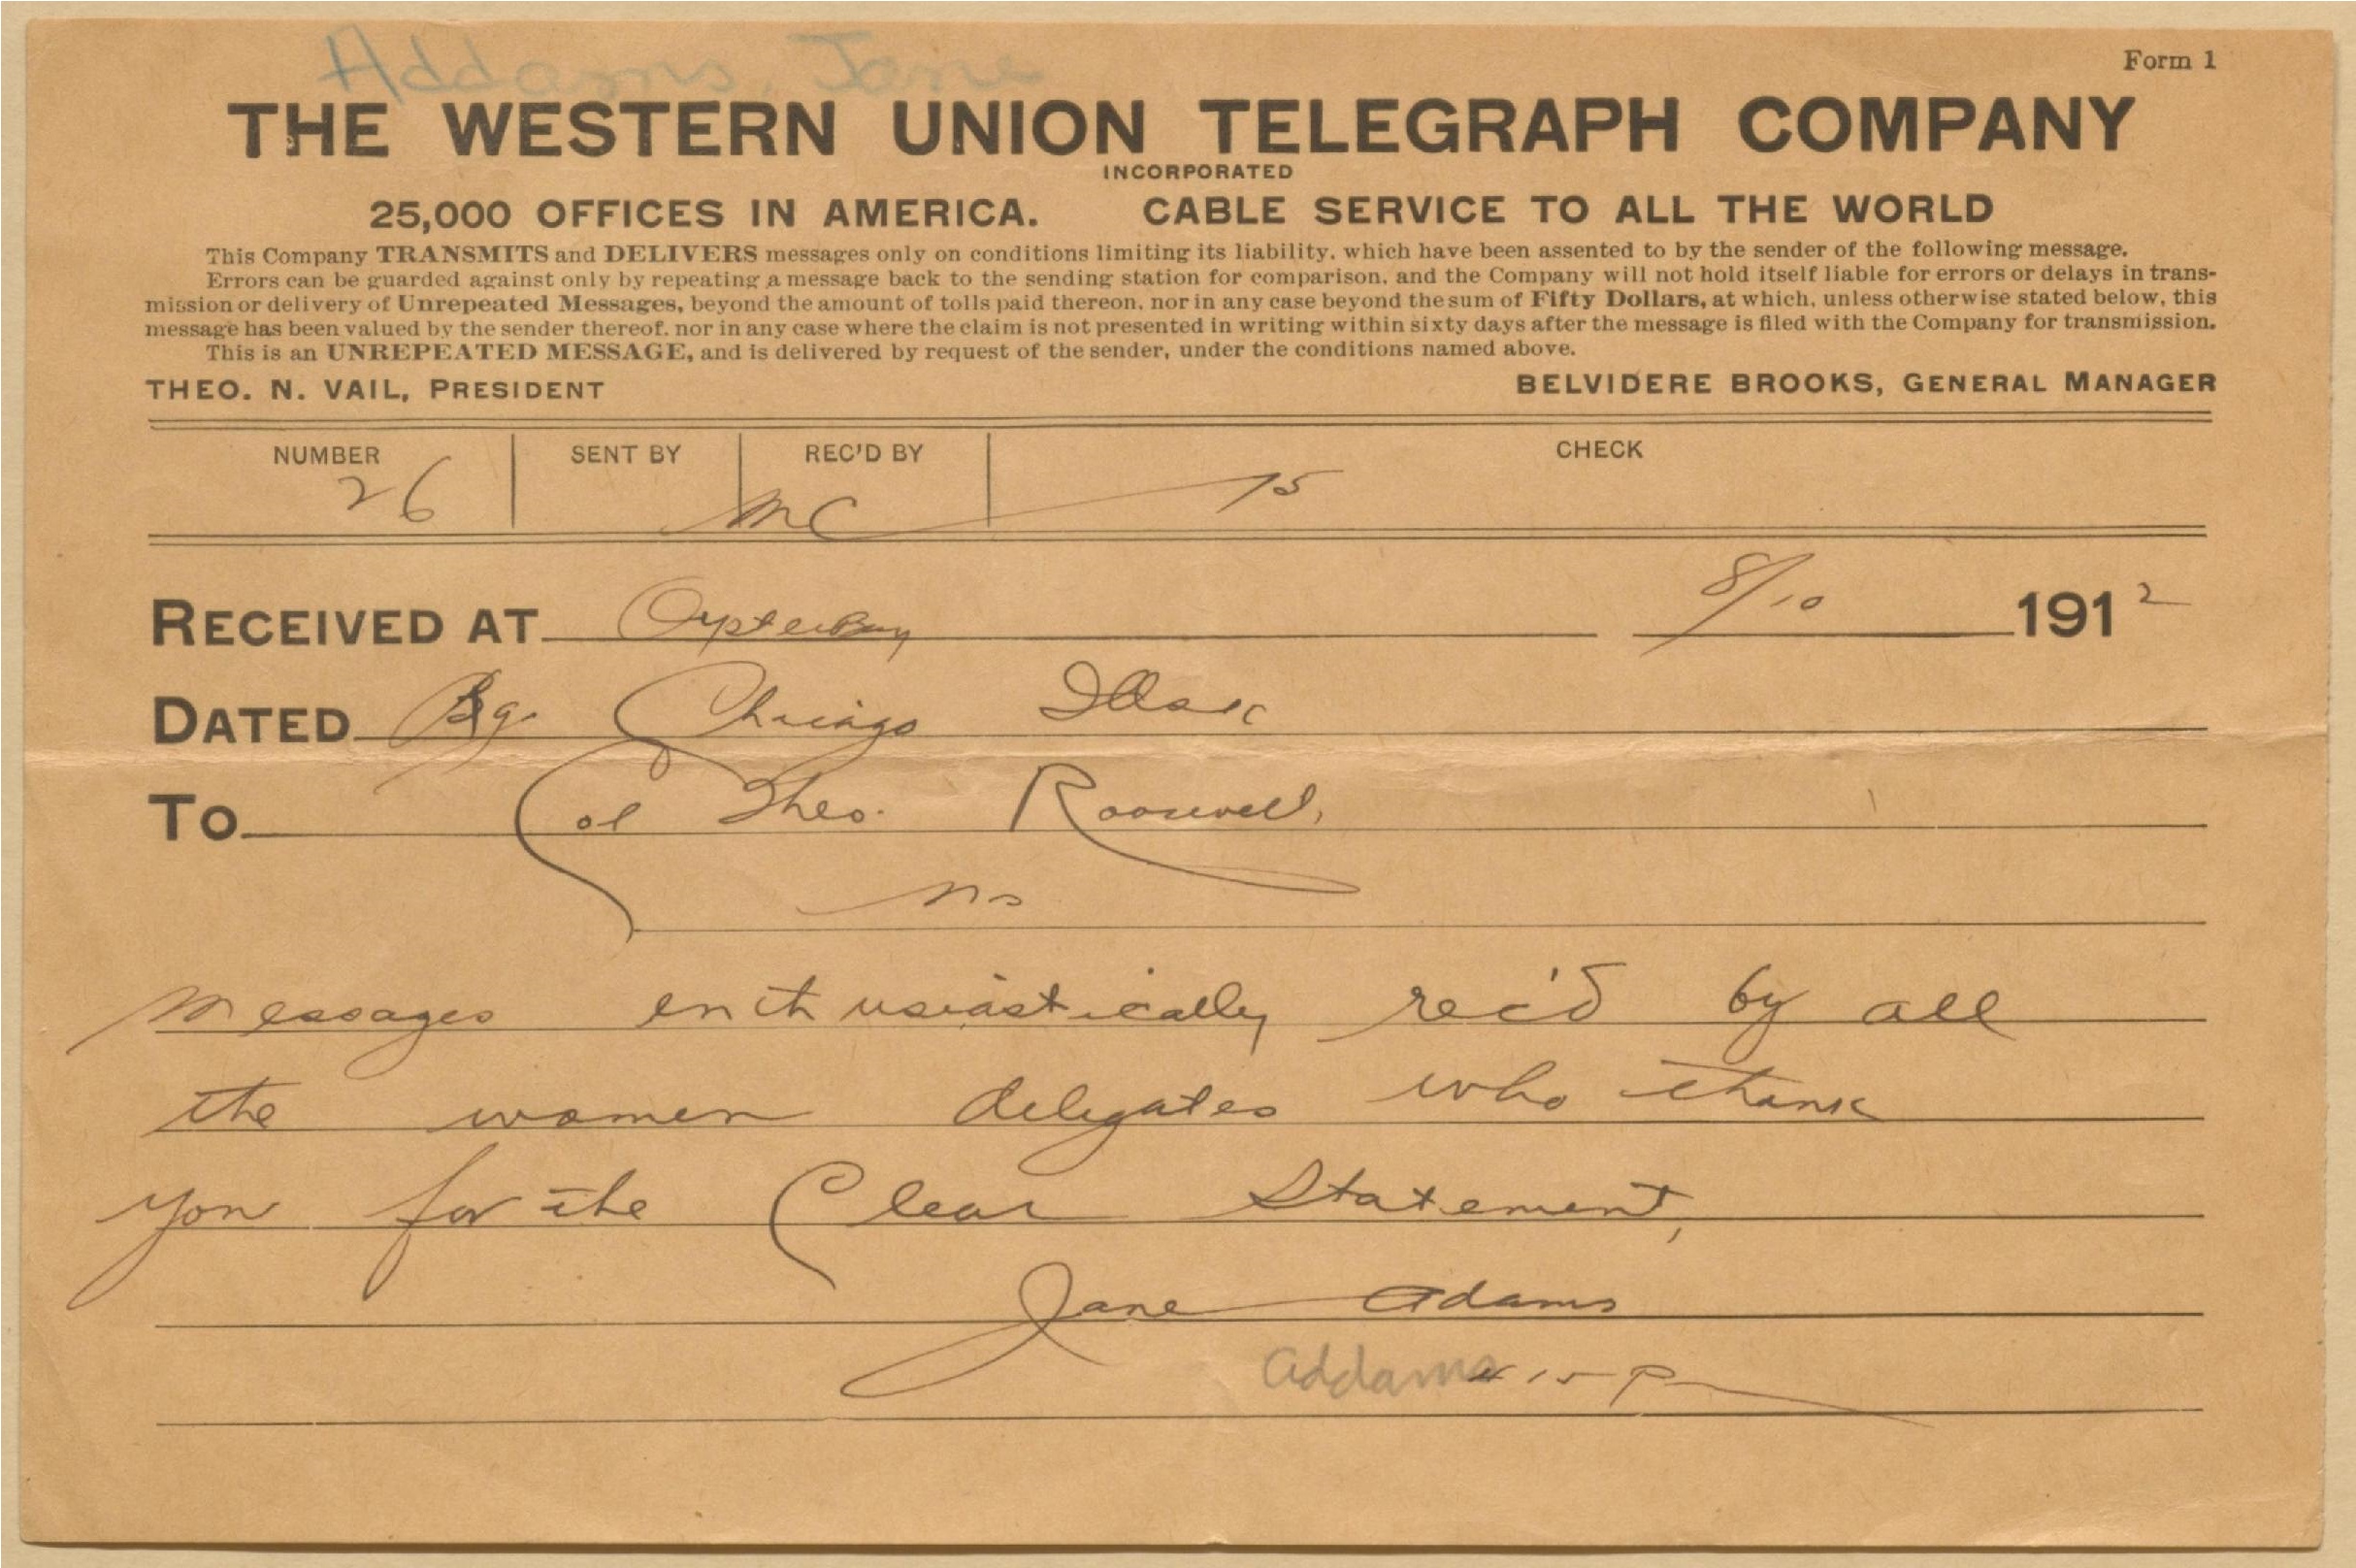 Addams, Jane
Form 1
THE WESTERN UNION TELEGRAPH COMPANY
INCORPORATED
25,000 OFFICES IN AMERICA. CABLE SERVICE TO ALL THE WORLD
This Company TRANSMITS and DELIVERS messages only on conditions limiting its liability, which have been assented to by the sender of the following message.
Errors can be guarded against only by repeating a message back to the sending station for comparison, and the Company will not hold itself liable for errors or delays in trans-
mission or delivery of Unrepeated Messages, beyond the amount of tolls paid thereon, nor in any case beyond the sum of Fifty Dollars, at which, unless otherwise stated below, this
message has been valued by the sender thereof, nor in any case where the claim is not presented in writing within sixty days after the message is filed with the Company for transmission.
This is an UNREPEATED MESSAGE, and is delivered by request of the sender, under the conditions named above.
THEO. N. VAIL, PRESIDENT BELVIDERE BROOKS, GENERAL MANAGER
NUMBER SENT BY REC'D BY CHECK
26 MC 15
RECEIVED AT Oyster Bay 8/10 1912
DATED Chicago
To Col Theo. Roosevelt,
Messages enthusiastically rec'd by all
the women delegates who thank
you for the Clear Statement,
Jane Adams
Addams 415P